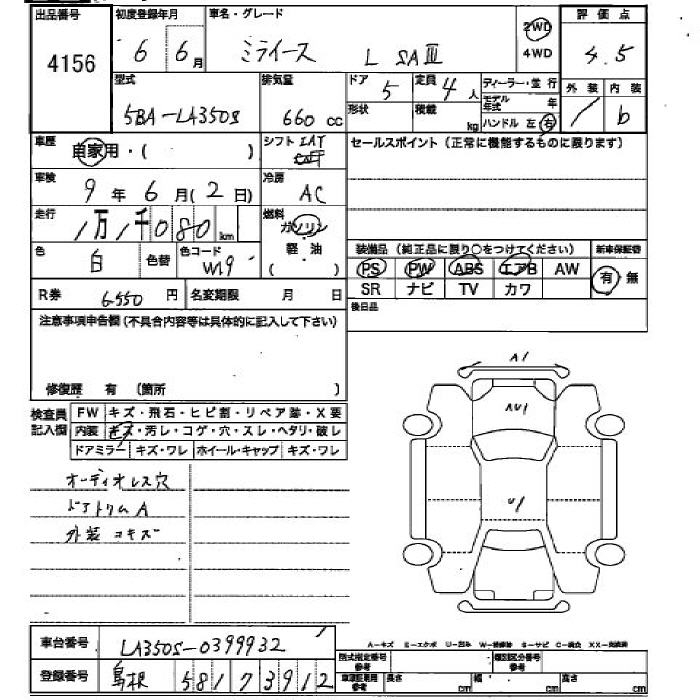 出品番号 初度登録年月 車名・グレード 評価点
4156 6 6月 ミライース L SAⅢ 2WD 4WD 4.5
型式 排気量 ドア 5 定員 4人 ディーラー・並行 外装 内装
5BA-LA350S 660cc 形状 積載 kg モデル年式 年 ハンドル 左 右 1 b
車歴 自家用・( ) シフト IAT セールスポイント(正常に機能するものに限ります)
車検 9年6月(2日) 冷房 AC
走行 1万1千080km 燃料 ガソリン 軽油 ( )
色 白 色替 色コード W19 装備品(純正品に限り○をつけてください) 新車保証書
PS PW ABS エアB AW 有・無
SR ナビ TV カワ
R券 6550円 名変期限 月 日 後日品
注意事項申告欄(不具合内容等は具体的に記入して下さい)
修復歴 有 (箇所 )
検査員記入欄 FW キズ・飛石・ヒビ割・リペア跡・X要
内装 キズ・汚レ・コゲ・穴・スレ・ヘタリ・破レ
ドアミラー キズ・ワレ ホイール・キャップ キズ・ワレ
オーディオレス穴
ドアトリムA
外装コキズ
A1
AU1
U1
車台番号 LA350S-0399932
A-キズ E-エクボ U-凹み W-補修跡 S-サビ C-腐食 XX-交換済
登録番号 島根 581 ワ 3912
型式指定番号 参考 類別区分番号 参考
車庫証明用 参考 長さ cm 幅 cm 高さ cm